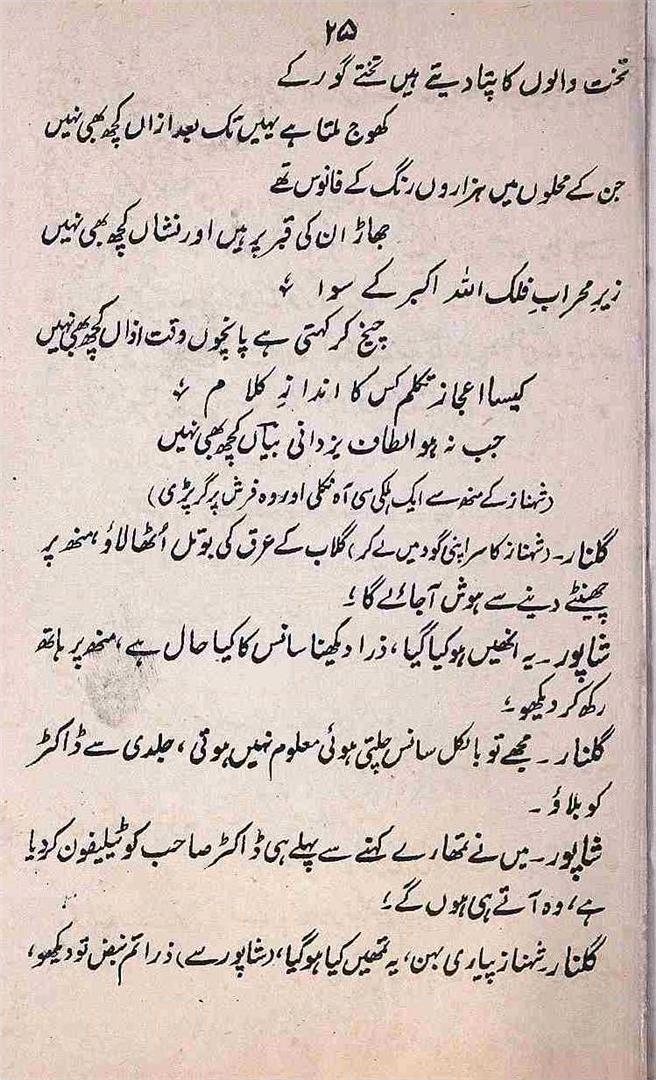 ۲۵
تخت والوں کا پتا دیتے ہیں تختے گور کے
کھوج ملتا ہے یہیں تک بعد ازاں کچھ بھی نہیں
جن کے محلوں میں ہزاروں رنگ کے فانوس تھے
جھاڑ ان کی قبر پر ہیں اور نشاں کچھ بھی نہیں
زیرِ محراب فلک اللہ اکبر کے سوا ؟
چیخ کر کہتی ہے پانچوں وقت اذاں کچھ بھی نہیں
کیسا اعجاز تکلم کس کا اندازِ کلام ؟
جب نہ ہو الطاف یزدانی بیاں کچھ بھی نہیں
(شہناز کے منھ سے ایک ہلکی سی آہ نکلی اور وہ فرش پر گر پڑی)
گلنار۔ (شہناز کا سر اپنی گود میں لے کر) گلاب کے عرق کی بوتل اُٹھا لاؤ منھ پر
چھینٹے دینے سے ہوش آجائے گا ؛
شاپور۔ یہ انھیں ہو کیا گیا، ذرا دیکھنا سانس کا کیا حال ہے، منھ پر ہاتھ
رکھ کر دیکھو ؛
گلنار۔ مجھے تو بالکل سانس چلتی ہوئی معلوم نہیں ہوتی، جلدی سے ڈاکٹر
کو بلاؤ۔
شاپور۔ میں نے تمھارے کہنے سے پہلے ہی ڈاکٹر صاحب کو ٹیلیفون کر دیا
ہے، وہ آتے ہی ہوں گے ؛
گلنار۔ شہناز پیاری بہن، یہ تمھیں کیا ہو گیا، (شاپور سے) ذرا تم نبض تو دیکھو،